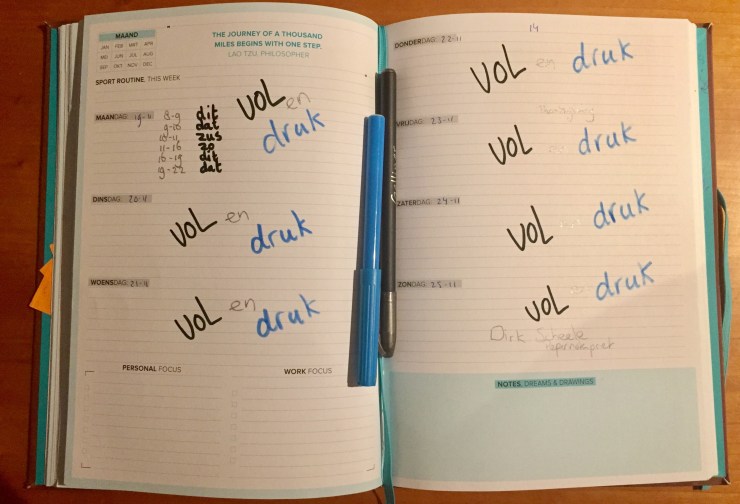 MAAND
JAN FEB MRT APR
MEI JUN JUL AUG
SEP OKT NOV DEC
THE JOURNEY OF A THOUSAND
MILES BEGINS WITH ONE STEP.
LAO TZU, PHILOSOPHER
SPORT ROUTINE, THIS WEEK
MAANDAG 19-11
8-9 dit
9-10 dat
10-11 zus
11-16 zo
16-19 dit
19-22 dat
VOL en
druk
DINSDAG 20-11
VOL en
druk
WOENSDAG 21-11
VOL en
druk
PERSONAL FOCUS
WORK FOCUS
14
DONDERDAG 22-11
VOL en druk
VRIJDAG 23-11
VOL druk
ZATERDAG 24-11
VOL druk
ZONDAG 25-11
VOL druk
Dirk Scheele
NOTES, DREAMS & DRAWINGS